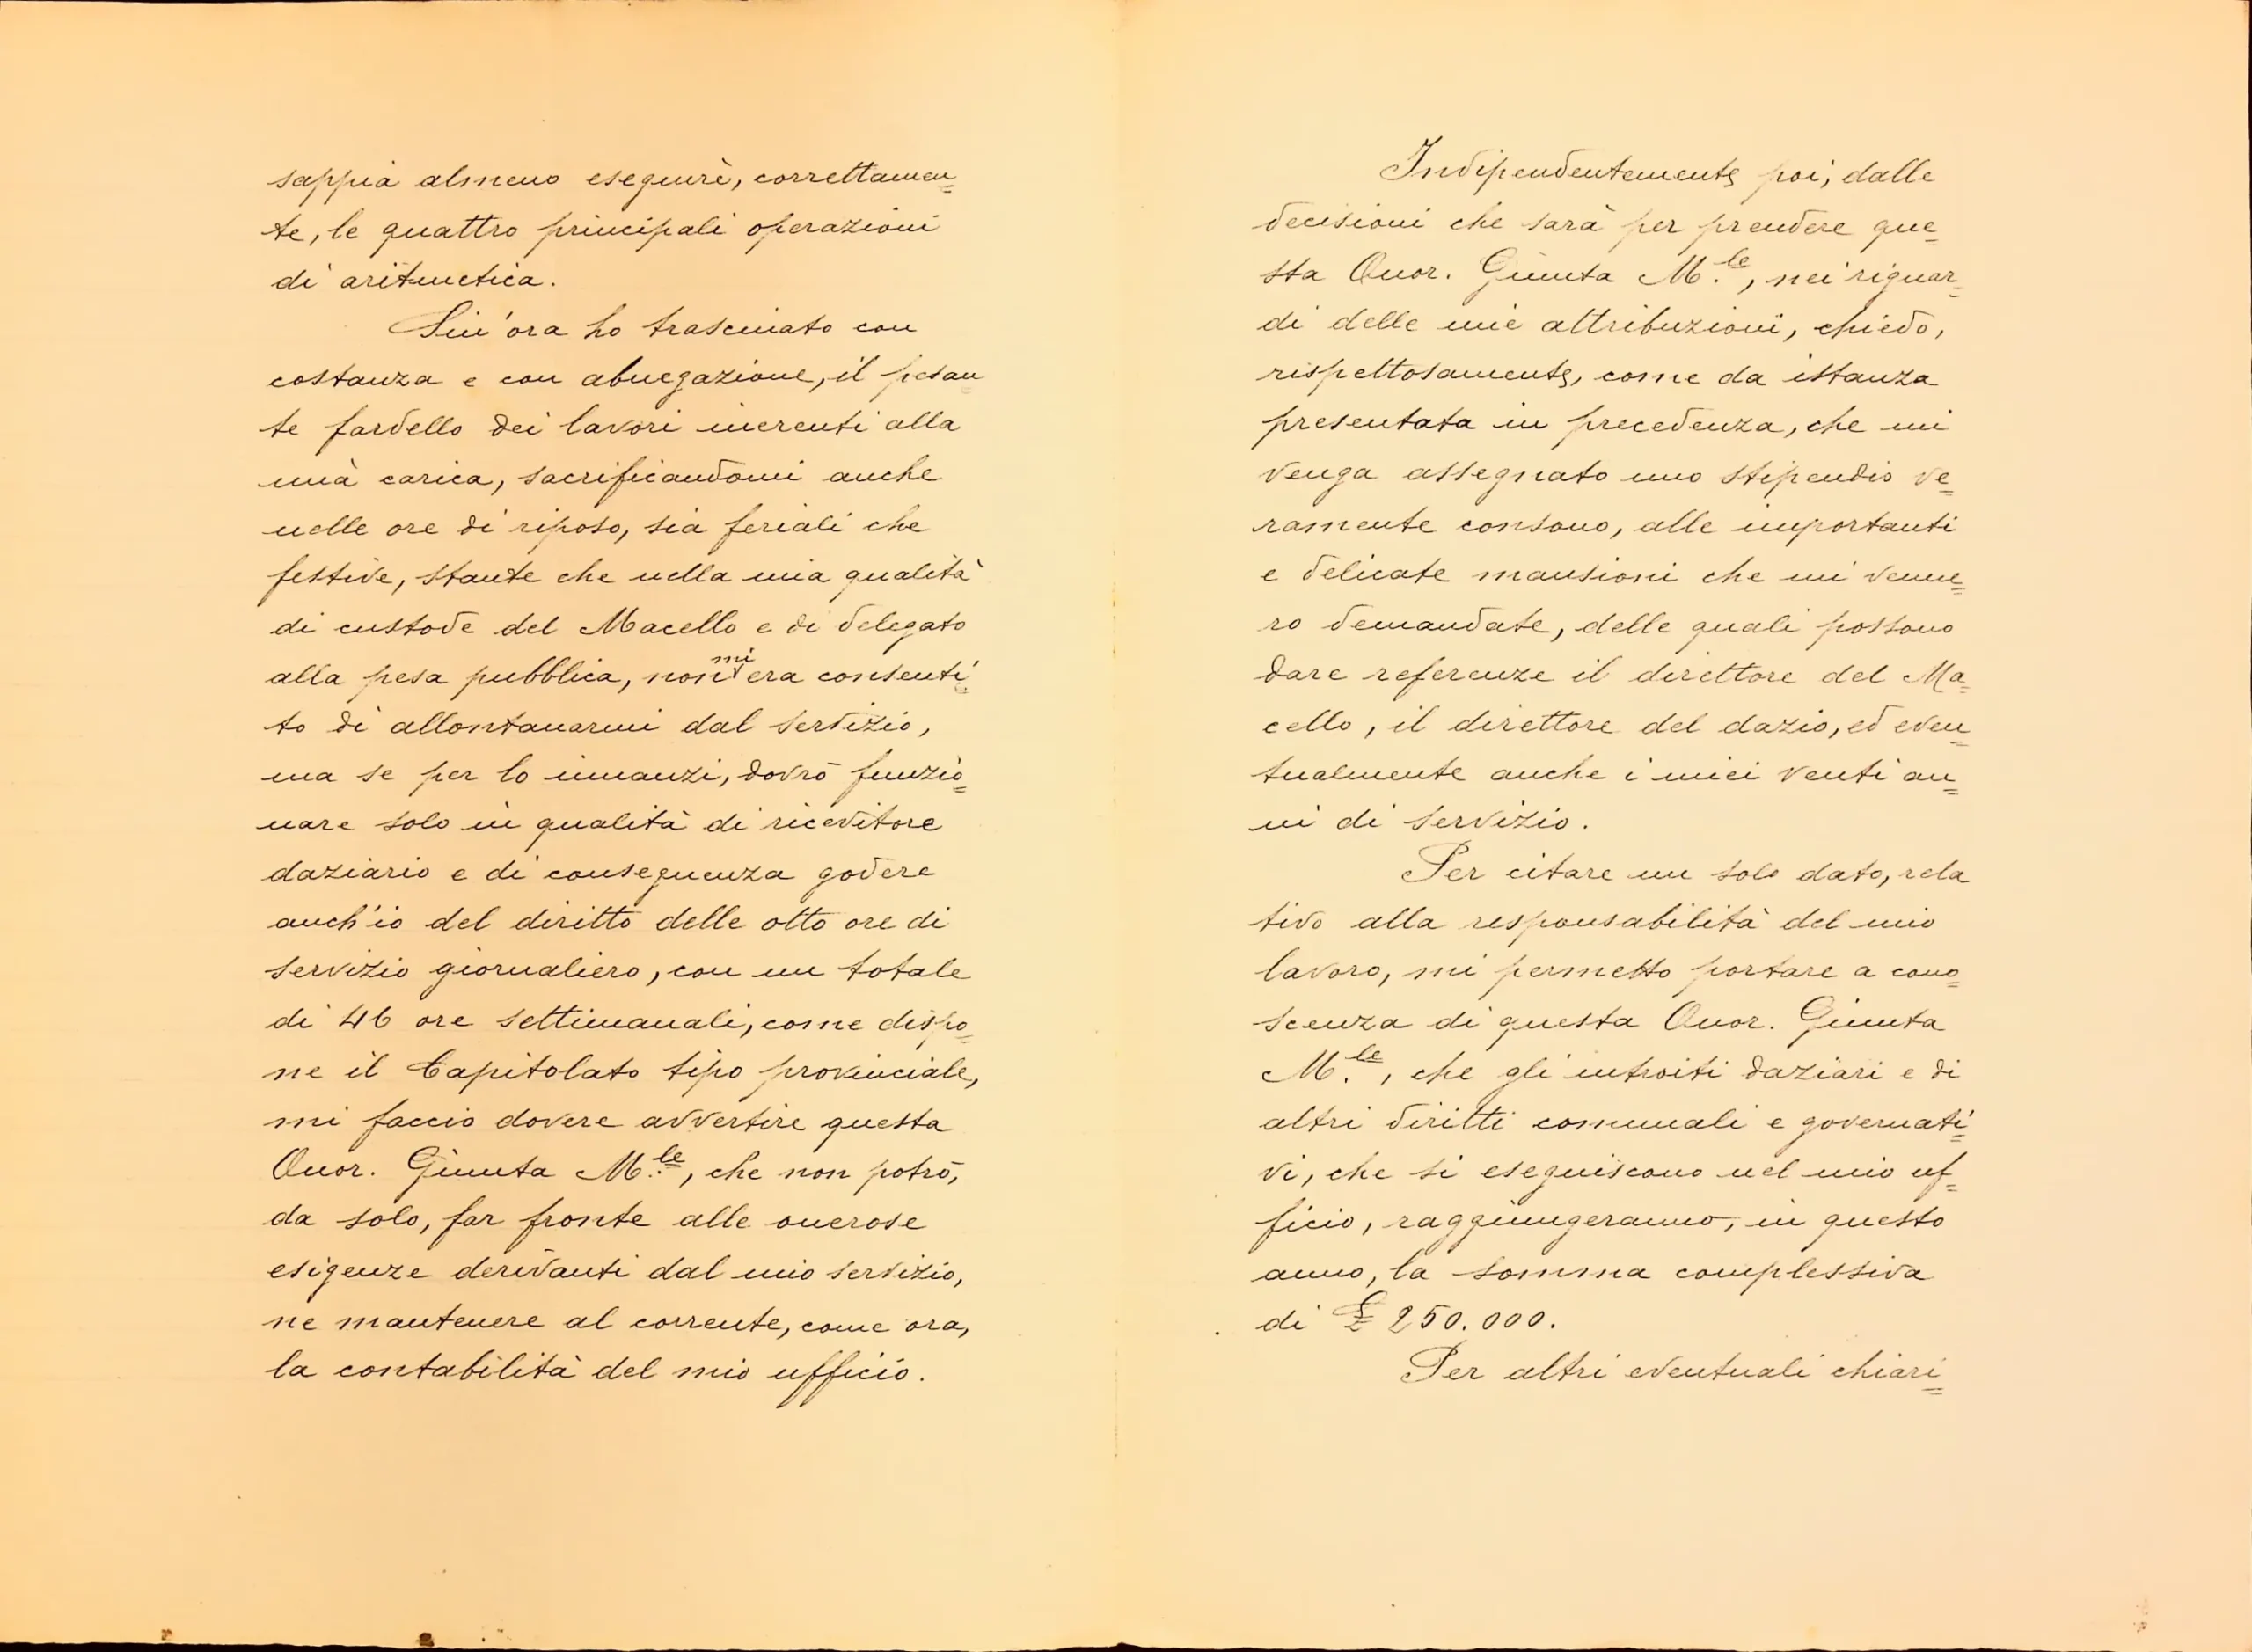 sappia almeno eseguire, correttamen=
te, le quattro principali operazioni
di aritmetica.
Sin'ora ho trascinato con
costanza e con abnegazione, il pesan=
te fardello dei lavori inerenti alla
mia carica, sacrificandomi anche
nelle ore di riposo, sia feriali che
festive, stante che nella mia qualità
di custode del Macello e di delegato
alla pesa pubblica, non mi era consenti=
to di allontanarmi dal servizio,
ma se per lo innanzi, dovrò funzio=
nare solo in qualità di ricevitore
daziario e di conseguenza godere
anch'io del diritto delle otto ore di
servizio giornaliero, con un totale
di 46 ore settimanali, come dispo=
ne il Capitolato tipo provinciale,
mi faccio dovere avvertire questa
Onor. Giunta M.le, che non potrò,
da solo, far fronte alle onerose
esigenze derivanti dal mio servizio,
ne mantenere al corrente, come ora,
la contabilità del mio ufficio.
Indipendentemente poi, dalle
decisioni che sarà per prendere que=
sta Onor. Giunta M.le, nei riguar=
di delle mie attribuzioni, chiedo,
rispettosamente, come da istanza
presentata in precedenza, che mi
venga assegnato uno stipendio ve=
ramente consono, alle importanti
e delicate mansioni che mi venne=
ro demandate, delle quali possono
dare referenze il direttore del Ma=
cello, il direttore del dazio, ed even=
tualmente anche i miei venti an=
ni di servizio.
Per citare un solo dato, rela
tivo alla responsabilità del mio
lavoro, mi permetto portare a cono=
scenza di questa Onor. Giunta
M.le, che gli introiti daziari e di
altri diritti comunali e governati=
vi, che si eseguiscono nel mio uf=
ficio, raggiungeranno, in questo
anno, la somma complessiva
di £ 250.000.
Per altri eventuali chiari=